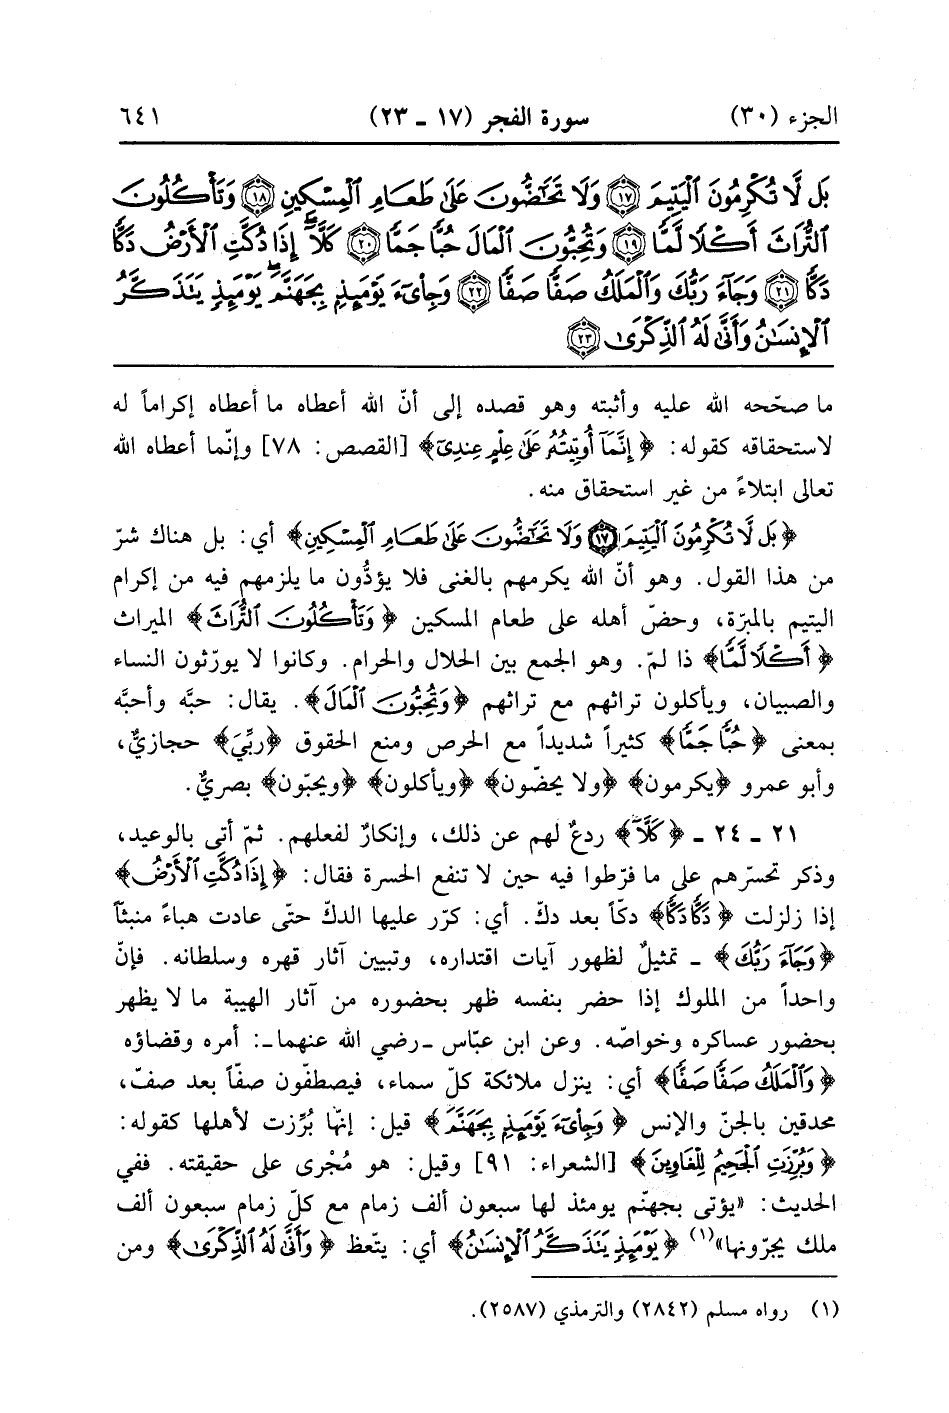 الجزء (٣٠) سورة الفجر (١٧ ـ ٢٣) ٦٤١
بَل لَّا تُكْرِمُونَ الْيَتِيمَ ﴿١٧﴾ وَلَا تَحَاضُّونَ عَلَى طَعَامِ الْمِسْكِينِ ﴿١٨﴾ وَتَأْكُلُونَ
التُّرَاثَ أَكْلًا لَّمًّا ﴿١٩﴾ وَتُحِبُّونَ الْمَالَ حُبًّا جَمًّا ﴿٢٠﴾ كَلَّا إِذَا دُكَّتِ الْأَرْضُ دَكًّا
دَكًّا ﴿٢١﴾ وَجَاءَ رَبُّكَ وَالْمَلَكُ صَفًّا صَفًّا ﴿٢٢﴾ وَجِايءَ يَوْمَئِذٍ بِجَهَنَّمَ يَوْمَئِذٍ يَتَذَكَّرُ
الْإِنسَانُ وَأَنَّى لَهُ الذِّكْرَى ﴿٢٣﴾
ما صحّحه الله عليه وأثبته وهو قصده إلى أنّ الله أعطاه ما أعطاه إكراماً له
لاستحقاقه كقوله: ﴿إِنَّمَا أُوتِيتُهُ عَلَى عِلْمٍ عِندِي﴾ [القصص: ٧٨] وإنّما أعطاه الله
تعالى ابتلاءً من غير استحقاق منه.
﴿بَل لَّا تُكْرِمُونَ الْيَتِيمَ ﴿١٧﴾ وَلَا تَحَاضُّونَ عَلَى طَعَامِ الْمِسْكِينِ﴾ أي: بل هناك شرّ
من هذا القول. وهو أنّ الله يكرمهم بالغنى فلا يؤدُّون ما يلزمهم فيه من إكرام
اليتيم بالمبرّة، وحضّ أهله على طعام المسكين ﴿وَتَأْكُلُونَ التُّرَاثَ﴾ الميراث
﴿أَكْلًا لَّمًّا﴾ ذا لمّ. وهو الجمع بين الحلال والحرام. وكانوا لا يورّثون النساء
والصبيان، ويأكلون تراثهم مع تراثهم ﴿وَتُحِبُّونَ الْمَالَ﴾. يقال: حبَّه وأحبَّه
بمعنى ﴿حُبًّا جَمًّا﴾ كثيراً شديداً مع الحرص ومنع الحقوق ﴿ربِّيَ﴾ حجازيٌّ،
وأبو عمرو ﴿يكرمون﴾ ﴿ولا يحضّون﴾ ﴿ويأكلون﴾ ﴿ويحبّون﴾ بصريٌّ.
٢١ ـ ٢٤ ـ ﴿كَلَّا﴾ ردعٌ لهم عن ذلك، وإنكارٌ لفعلهم. ثمّ أتى بالوعيد،
وذكر تحسّرهم على ما فرّطوا فيه حين لا تنفع الحسرة فقال: ﴿إِذَا دُكَّتِ الْأَرْضُ﴾
إذا زلزلت ﴿دَكًّا دَكًّا﴾ دكّاً بعد دكّ. أي: كرّر عليها الدكّ حتّى عادت هباءً منبثّاً
﴿وَجَاءَ رَبُّكَ﴾ ـ تمثيلٌ لظهور آيات اقتداره، وتبيين آثار قهره وسلطانه. فإنّ
واحداً من الملوك إذا حضر بنفسه ظهر بحضوره من آثار الهيبة ما لا يظهر
بحضور عساكره وخواصّه. وعن ابن عبّاس ـ رضي الله عنهما ـ: أمره وقضاؤه
﴿وَالْمَلَكُ صَفًّا صَفًّا﴾ أي: ينزل ملائكة كلّ سماء، فيصطفّون صفّاً بعد صفّ،
محدقين بالجنّ والإنس ﴿وَجِايءَ يَوْمَئِذٍ بِجَهَنَّمَ﴾ قيل: إنّها بُرِّزت لأهلها كقوله:
﴿وَبُرِّزَتِ الْجَحِيمُ لِلْغَاوِينَ﴾ [الشعراء: ٩١] وقيل: هو مُجْرى على حقيقته. ففي
الحديث: «يؤتى بجهنّم يومئذ لها سبعون ألف زمام مع كلّ زمام سبعون ألف
ملك يجرّونها»(١) ﴿يَوْمَئِذٍ يَتَذَكَّرُ الْإِنسَانُ﴾ أي: يتّعظ ﴿وَأَنَّى لَهُ الذِّكْرَى﴾ ومن
(١) رواه مسلم (٢٨٤٢) والترمذي (٢٥٨٧).